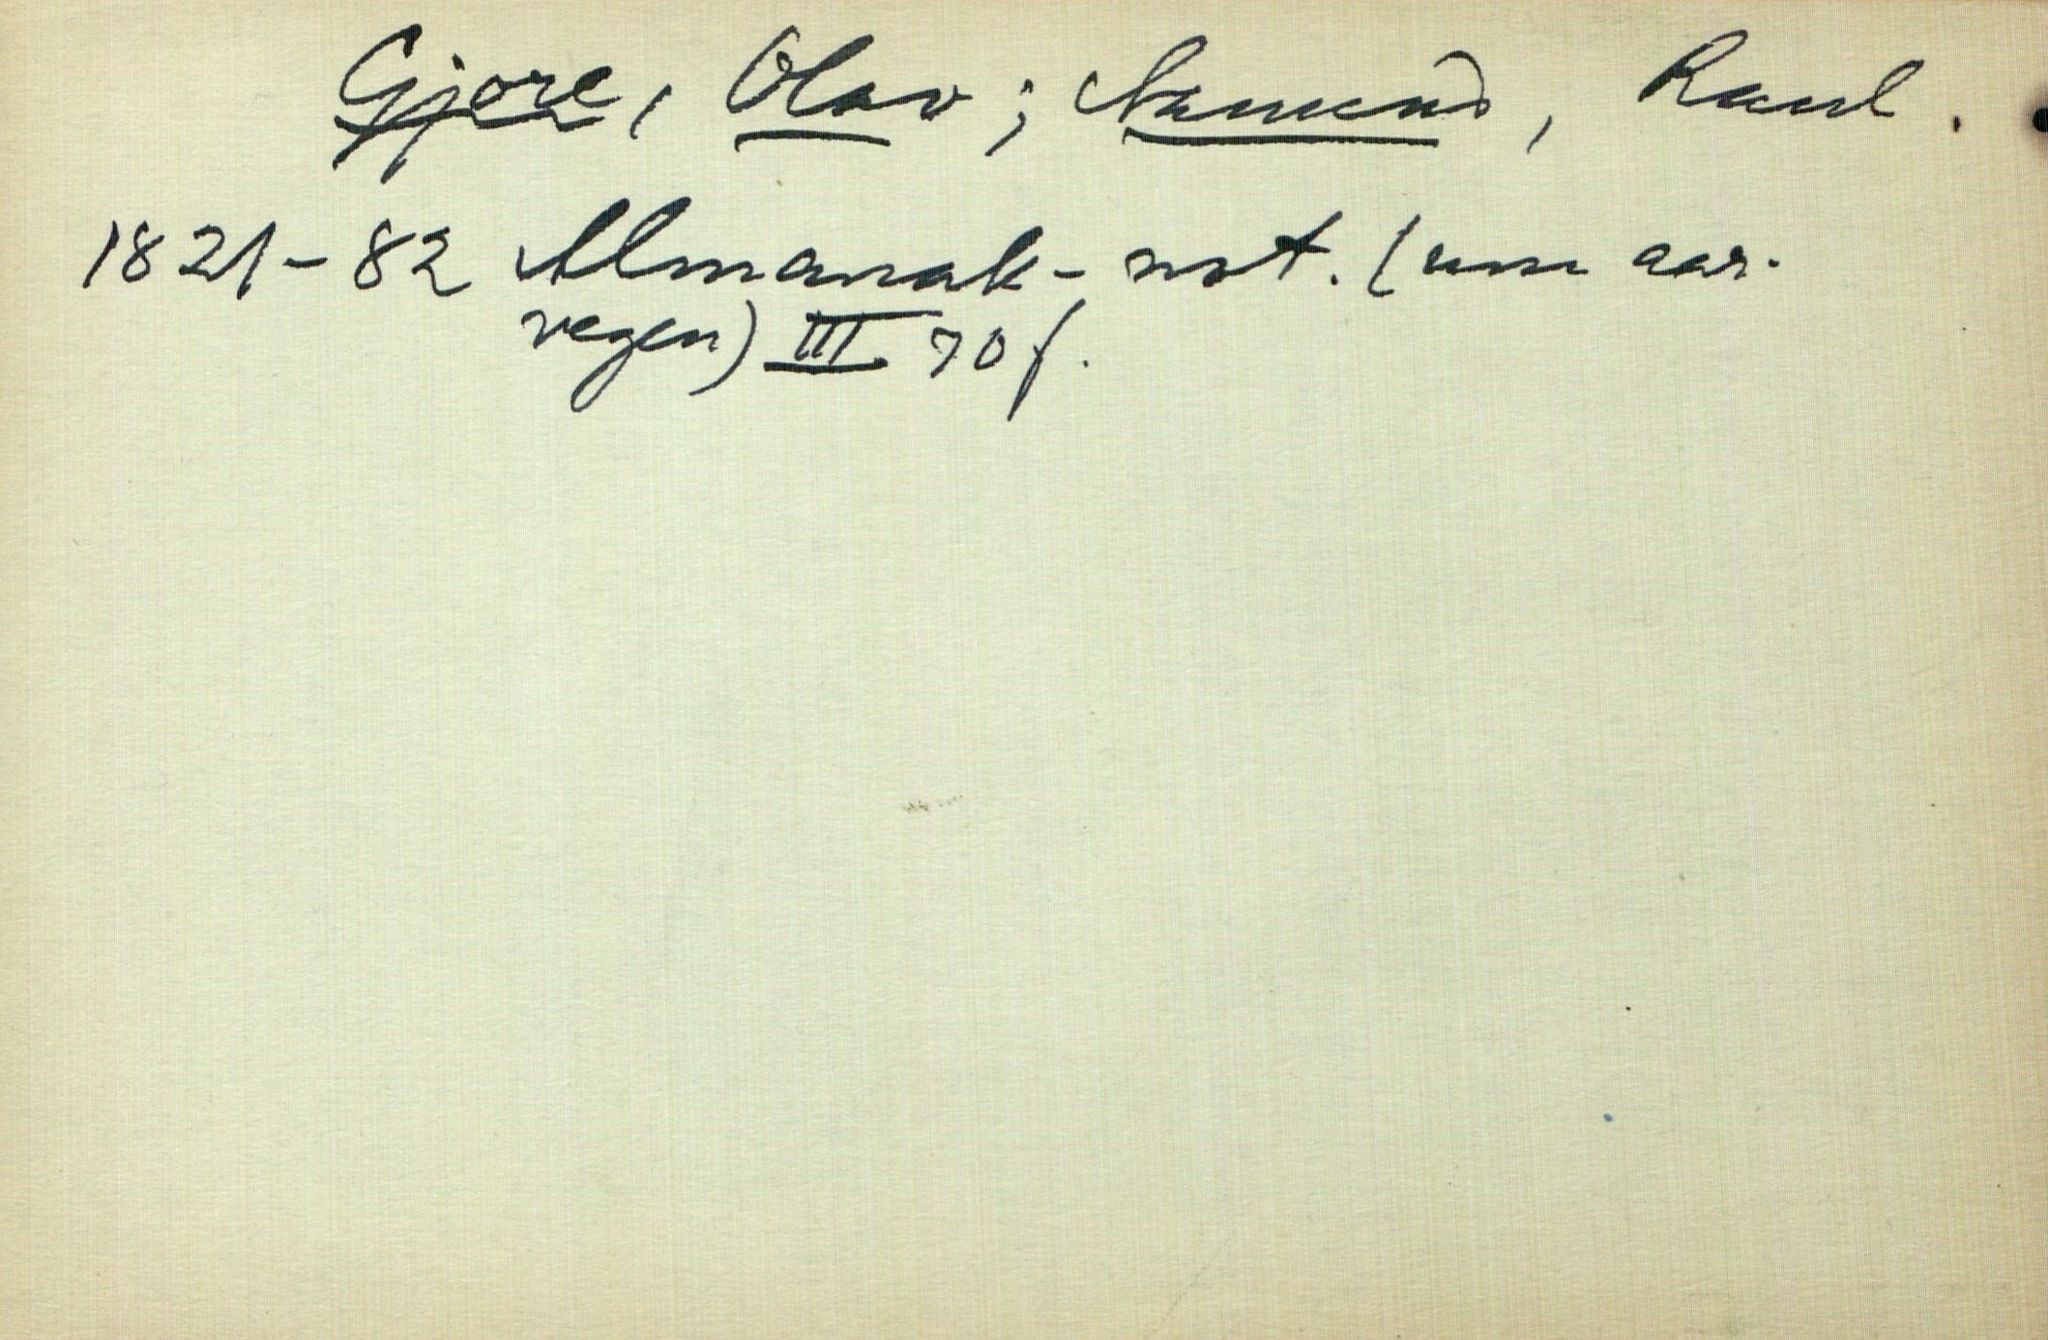 Gjore, Olav; Aamund, Raul.
1821-82 Almanak-not. (um aar-
vegen) III 70 f.